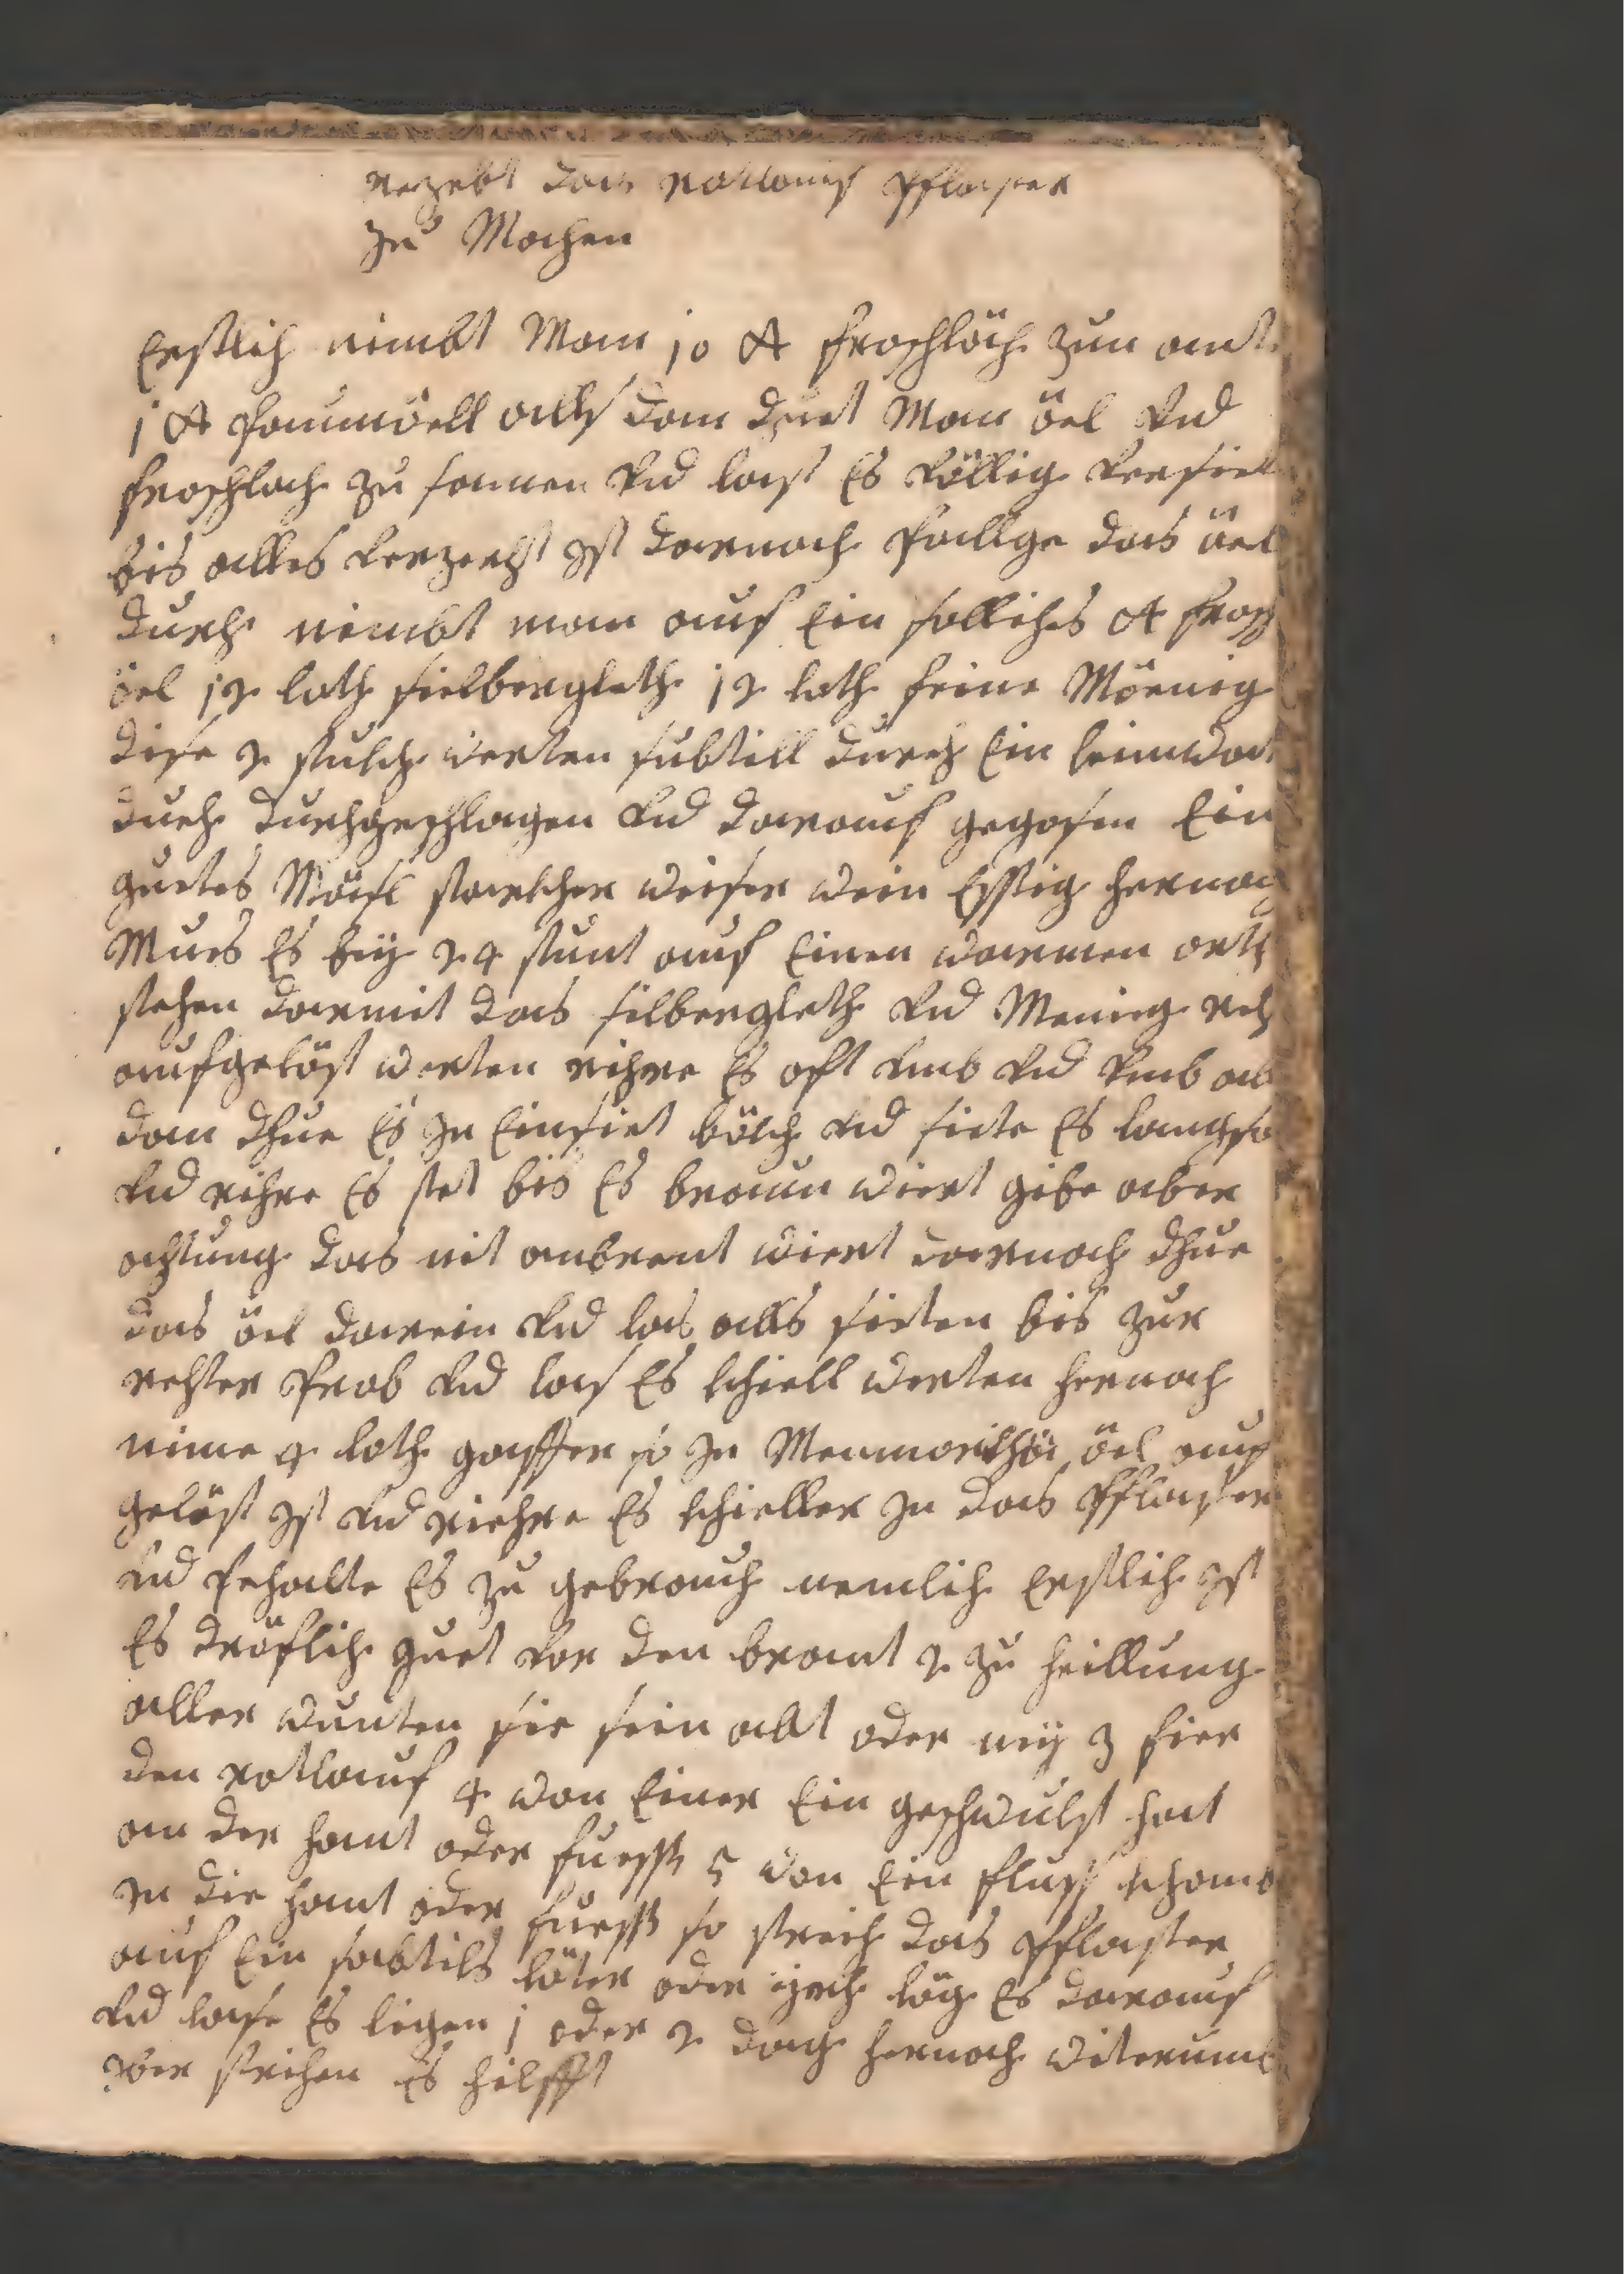 rezebt das rotlauf Pflaster
zu Machen
Erstlich nimbt Man 10 ℔ froschläch zum ant
1 ℔ Paumöell alls dan duet Man öel Vnd
froschlach zu samen Vnd last Es Völlig Versiet
bis alles Verzerht Ist darnach Pallge das öel
durch nimbt man auf Ein solliches ℔ frosch
öel 12 loth sielbergleth 12 loth feine Mönig
dise 2 stukh werten subtill durch Ein leinwat
duch durchgeschlagen Vnd darauf gegosen Ein
guetes Mäsl starkher weiser wein Essig hernach
Mues Es bey 24 stunt auf Einen warmen orth
stehen darmit das silbergleth Vnd Menig rch
aufgelöst werten rihre Es oft Vmb Vnd Vmb als
dan dhue Es In Einsiet bökh Vnd siete Es langsa
Vnd rihre Es stet bis Es braun wiert gibe aber
achtung das nit anbrent wiert darnach dhue
das öel darein Vnd las alls sieten bis zur
rehter Prob Vnd las Es khiell werten hernach
nime 4 loth gaffer so In öel auf
gelöst Ist Vnd riehre Es khieller In das Pflaster
Vnd Pehalte Es zu gebrauch nemlich Erstlich Ist
Es dröflich guet Vor den brant 2 zu heillung
aller wunten sie sein alt oder ney 3 fier
den rotlauf 4 wan Einer Ein geschwulst hat
an der hant oder fuess 5 wan Ein fluss khomb
In die hant oder fuess so streich das Pflaster
auf Ein sabtils läter oder läg Es darauf
Vnd lase Es ligen 1 oder 2 dag hernach witerumb
Iber strihen Es hilfft